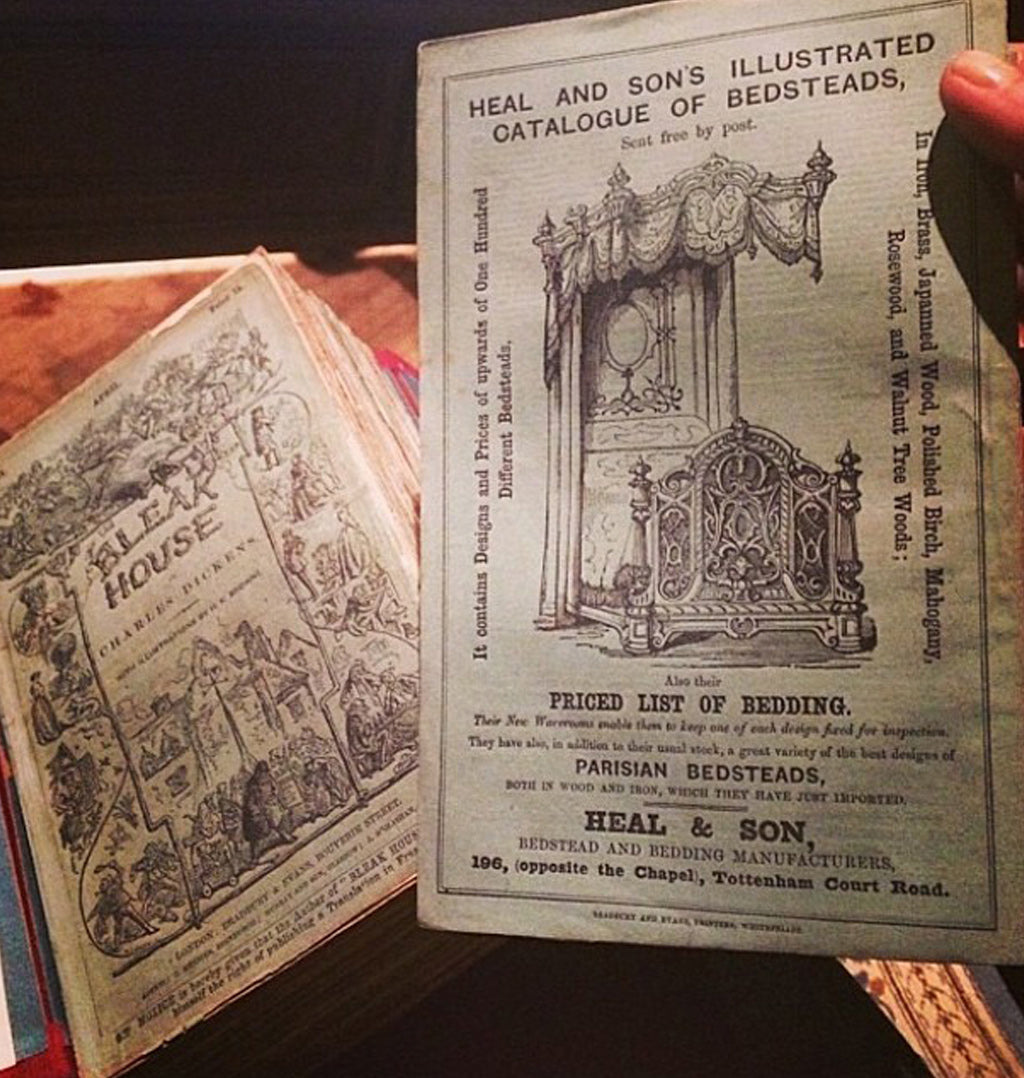 HEAL AND SON'S ILLUSTRATED
CATALOGUE OF BEDSTEADS,
Sent free by post.
It contains Designs and Prices of upwards of One Hundred
Different Bedsteads,
In Iron, Brass, Japanned Wood, Polished Birch, Mahogany,
Rosewood, and Walnut Tree Woods;
Also their
PRICED LIST OF BEDDING.
Their New Warerooms enable them to keep one of each design fixed for inspection.
They have also, in addition to their usual stock, a great variety of the best designs of
PARISIAN BEDSTEADS,
BOTH IN WOOD AND IRON, WHICH THEY HAVE JUST IMPORTED.
HEAL & SON,
BEDSTEAD AND BEDDING MANUFACTURERS,
196, (opposite the Chapel), Tottenham Court Road.
BRADBURY AND EVANS, PRINTERS, WHITEFRIARS.
APRIL.
Price 1s.
BLEAK
HOUSE
BY
CHARLES DICKENS.
WITH ILLUSTRATIONS BY H. K. BROWNE.
LONDON: BRADBURY & EVANS, BOUVERIE STREET.
NOTICE is hereby given that the Author of "BLEAK HOUS
himself the right of publishing a Translation in Fre